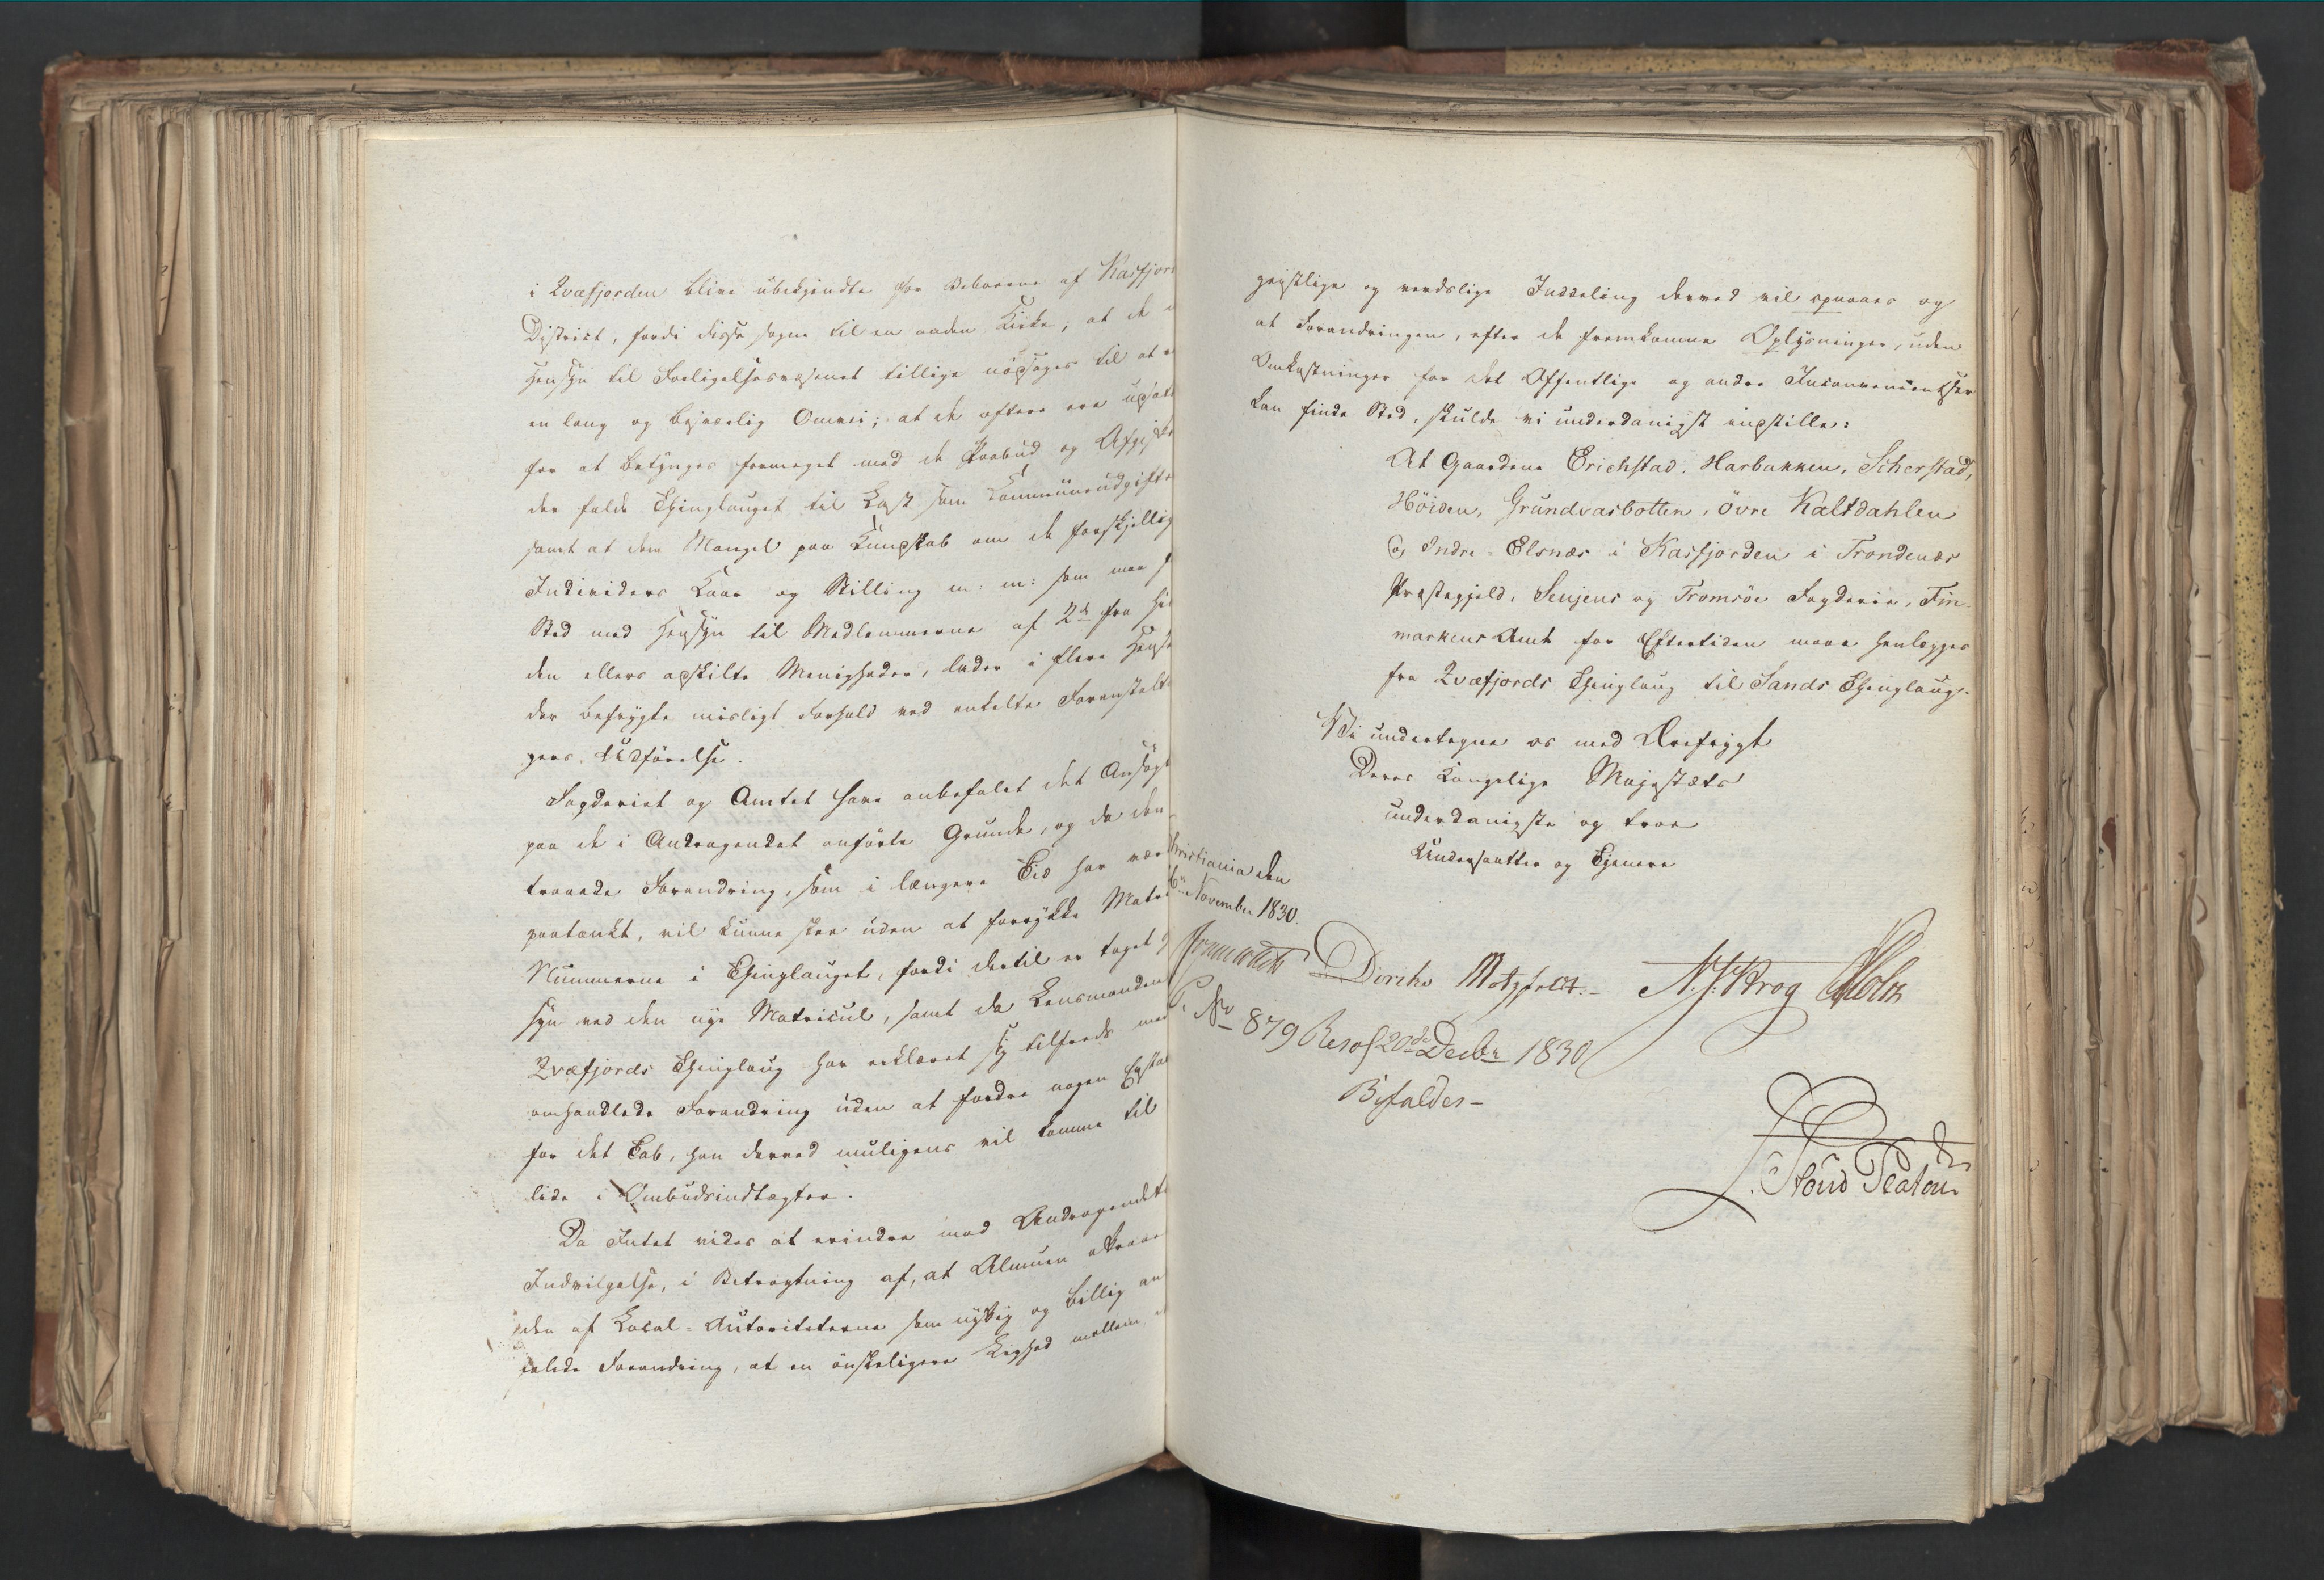 i Qvæfjorden blive ubekjendte for Beboerne af Kasfjord
District, fordi disse søgne til en anden Kirke; at de i
Hensyn til Forligelsesvæsenet tillige nödsages til at
en lang og besværlig Omvei; at de oftere ere udsatte
for at betynges formeget med de Paabud og Afgifter
der falde Thinglauget til Last som Communeudgifter
samt at den Mangel paa Kundskab om de forskjellige
Individers Kaar og Stilling m: m: som maa
Sted med Hensyn til Medlemmerne af 2de fra hin
den ellers adskilte Menigheder, lader i flere Hense
der befrygte misligt Forhold ved enkelte Foranstalt
gers Udførelse.
Fogderiet og Amtet have anbefalet det Ansøgte
paa de i Andragendet anförte Grunde, og da den
traaede Forandring, som i længere Tid har vær
paatænkt, vil kunne skee uden at forrykke Matri
Nummerne i Thinglauget, fordi dertil er taget
syn ved den nye Matricul, samt da Lensmanden
Qvæfjords Thinglaug har erklæret sig tilfreds med
omhandlede Forandring uden at fordre nogen Erstat
for det Tab, han derved muligens vil komme til
lide i Ombudsindtægter.
Da Intet vides at erindre mod Andragendets
Indvilgelse, i Betragtning af, at Almuen attraaer
den af Local-Autoriteterne som nyttig og billig an
seelde Forandring, at en önskeligere Lighed mellem
geistlige og verdslige Inddeling derved vil opnaaes og
at Forandringen, efter de fremkomne Oplysninger, uden
Omkostninger for det Offentlige og andre Inconvenientser
kan finde Sted, skulde vi underdanigst indstille:
At Gaardene Erichstad, Harbakken, Scherstad,
Höiden, Grundvasbotten, Övre Kaltdahlen
og Indre-Elsnæs i Kasfjorden i Trondenæs
Præstegjeld, Senjens og Tromsöe Fogderie, Fin-
markens Amt for Eftertiden maae henlægges
fra Qvæfjords Thinglaug til Sands Thinglaug.
Vi undertegne os med Ærefrygt
Deres Kongelige Majestæts
underdanigste og troe
Undersaatter og Tjenere
Christiania den
November 1830.
Diriks Motzfeldt.- N. J. Krog Holst
No 879 Resol 20de Decbr 1830
Bifaldes-